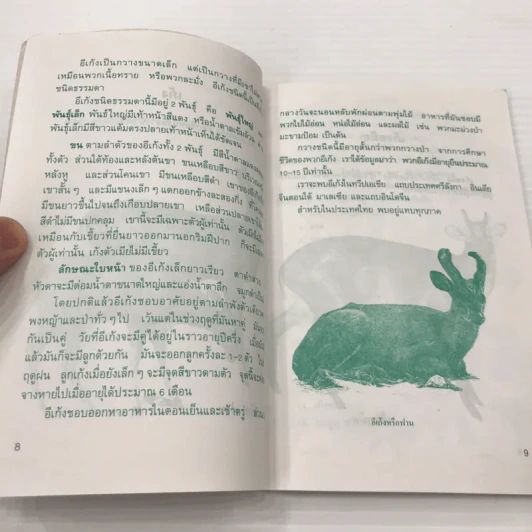 อีเก้งเป็นกวางขนาดเล็ก แต่เป็นกวางที่มีเขา
เหมือนพวกเนื้อทราย หรือพวกละมั่ง อีเก้งชนิดนี้เป็น
ชนิดธรรมดา
อีเก้งชนิดธรรมดานี้มีอยู่ 2 พันธุ์ คือ พันธุ์ใหญ่
พันธุ์เล็ก พันธุ์ใหญ่มีเท้าหน้าสีแดง หรือน้ำตาลเข้ม
พันธุ์เล็กมีสีขาวแต้มตรงปลายเท้าหน้าเห็นได้ชัดเจน
ขน ตามลำตัวของอีเก้งทั้ง 2 พันธุ์ มีสีน้ำตาลแดง
ทั้งตัว ส่วนใต้ท้องและหลังต้นขา ขนเหลือบสีขาว บริเวณ
หลังหู และส่วนโคนเขา มีขนเหลือบสีดำ เขาของอีเก้ง
เขาสั้น ๆ และมีแขนงเล็ก ๆ แตกออกข้างละสองกิ่ง
มีขนยาวขึ้นไปจนถึงเกือบปลายเขา เหลือส่วนปลายเขา
สีดำไม่มีขนปกคลุม เขานี้จะมีเฉพาะตัวผู้เท่านั้น ตัวเมีย
เหมือนกับเขี้ยวที่ยื่นยาวออกมานอกริมฝีปาก ก็จะมี
ตัวผู้เท่านั้น เก้งตัวเมียไม่มีเขี้ยว
ลักษณะใบหน้า ของอีเก้งเล็กยาวเรียว ตาดำสาว
หัวตาจะมีต่อมน้ำตาขนาดใหญ่และแอ่งน้ำตาลึก จมูกดำเป็น
โดยปกติแล้วอีเก้งชอบอาศัยอยู่ตามลำพังตัวเดียว
พงหญ้าและป่าทั่ว ๆ ไป เว้นแต่ในช่วงฤดูที่มันหาคู่
กันเป็นคู่ วัยที่อีเก้งจะมีคู่ได้อยู่ในราวอายุปีครึ่ง เมื่อ
แล้วมันก็จะมีลูกด้วยกัน มันจะออกลูกครั้งละ 1-2 ตัว
ฤดูฝน ลูกเก้งเมื่อยังเล็ก ๆ จะมีจุดสีขาวตามตัว จุดนี้จะ
จางหายไปเมื่ออายุได้ประมาณ 6 เดือน
อีเก้งชอบออกหาอาหารในตอนเย็นและเช้าตรู่ ส่วน
8
กลางวันจะนอนหลับพักผ่อนตามพุ่มไม้ อาหารที่มันชอบมี
พวกใบไม้อ่อน หน่อไม้อ่อน และผลไม้ เช่น พวกมะม่วงป่า
มะขามป้อม เป็นต้น
กวางชนิดนี้มีอายุสั้นกว่าพวกกวางป่า จากการศึกษา
ชีวิตของพวกอีเก้ง เราได้ข้อมูลมาว่า พวกอีเก้งมีอายุยืนประมาณ
10-15 ปีเท่านั้น
เราจะพบอีเก้งในทวีปเอเชีย แถบประเทศศรีลังกา อินเดีย
จีนตอนใต้ มาเลเซีย และแถบอินโดจีน
สำหรับในประเทศไทย พบอยู่แทบทุกภาค
อีเก้งหรือฟาน
9